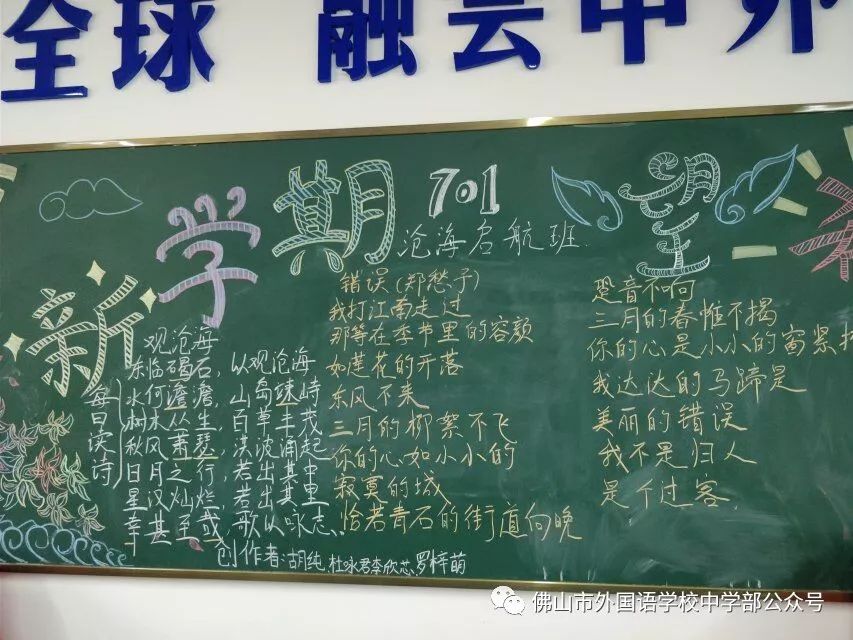 全球 融会中外
新学期
701
望
沧海启航班
每日读诗
观沧海
东临碣石，以观沧海
水何澹澹，山岛竦峙
树木丛生，百草丰茂
秋风萧瑟，洪波涌起
日月之行，若出其中
星汉灿烂，若出其里
幸甚至哉，歌以咏志
错误(郑愁予)
我打江南走过
那等在季节里的容颜
如莲花的开落
东风不来
三月的柳絮不飞
你的心如小小的
寂寞的城
恰若青石的街道向晚
跫音不响
三月的春帷不揭
你的心是小小的窗紧
我达达的马蹄是
美丽的错误
我不是归人
是个过客
创作者:胡纯 杜咏君 李欣芯 罗梓萌
佛山市外国语学校中学部公众号